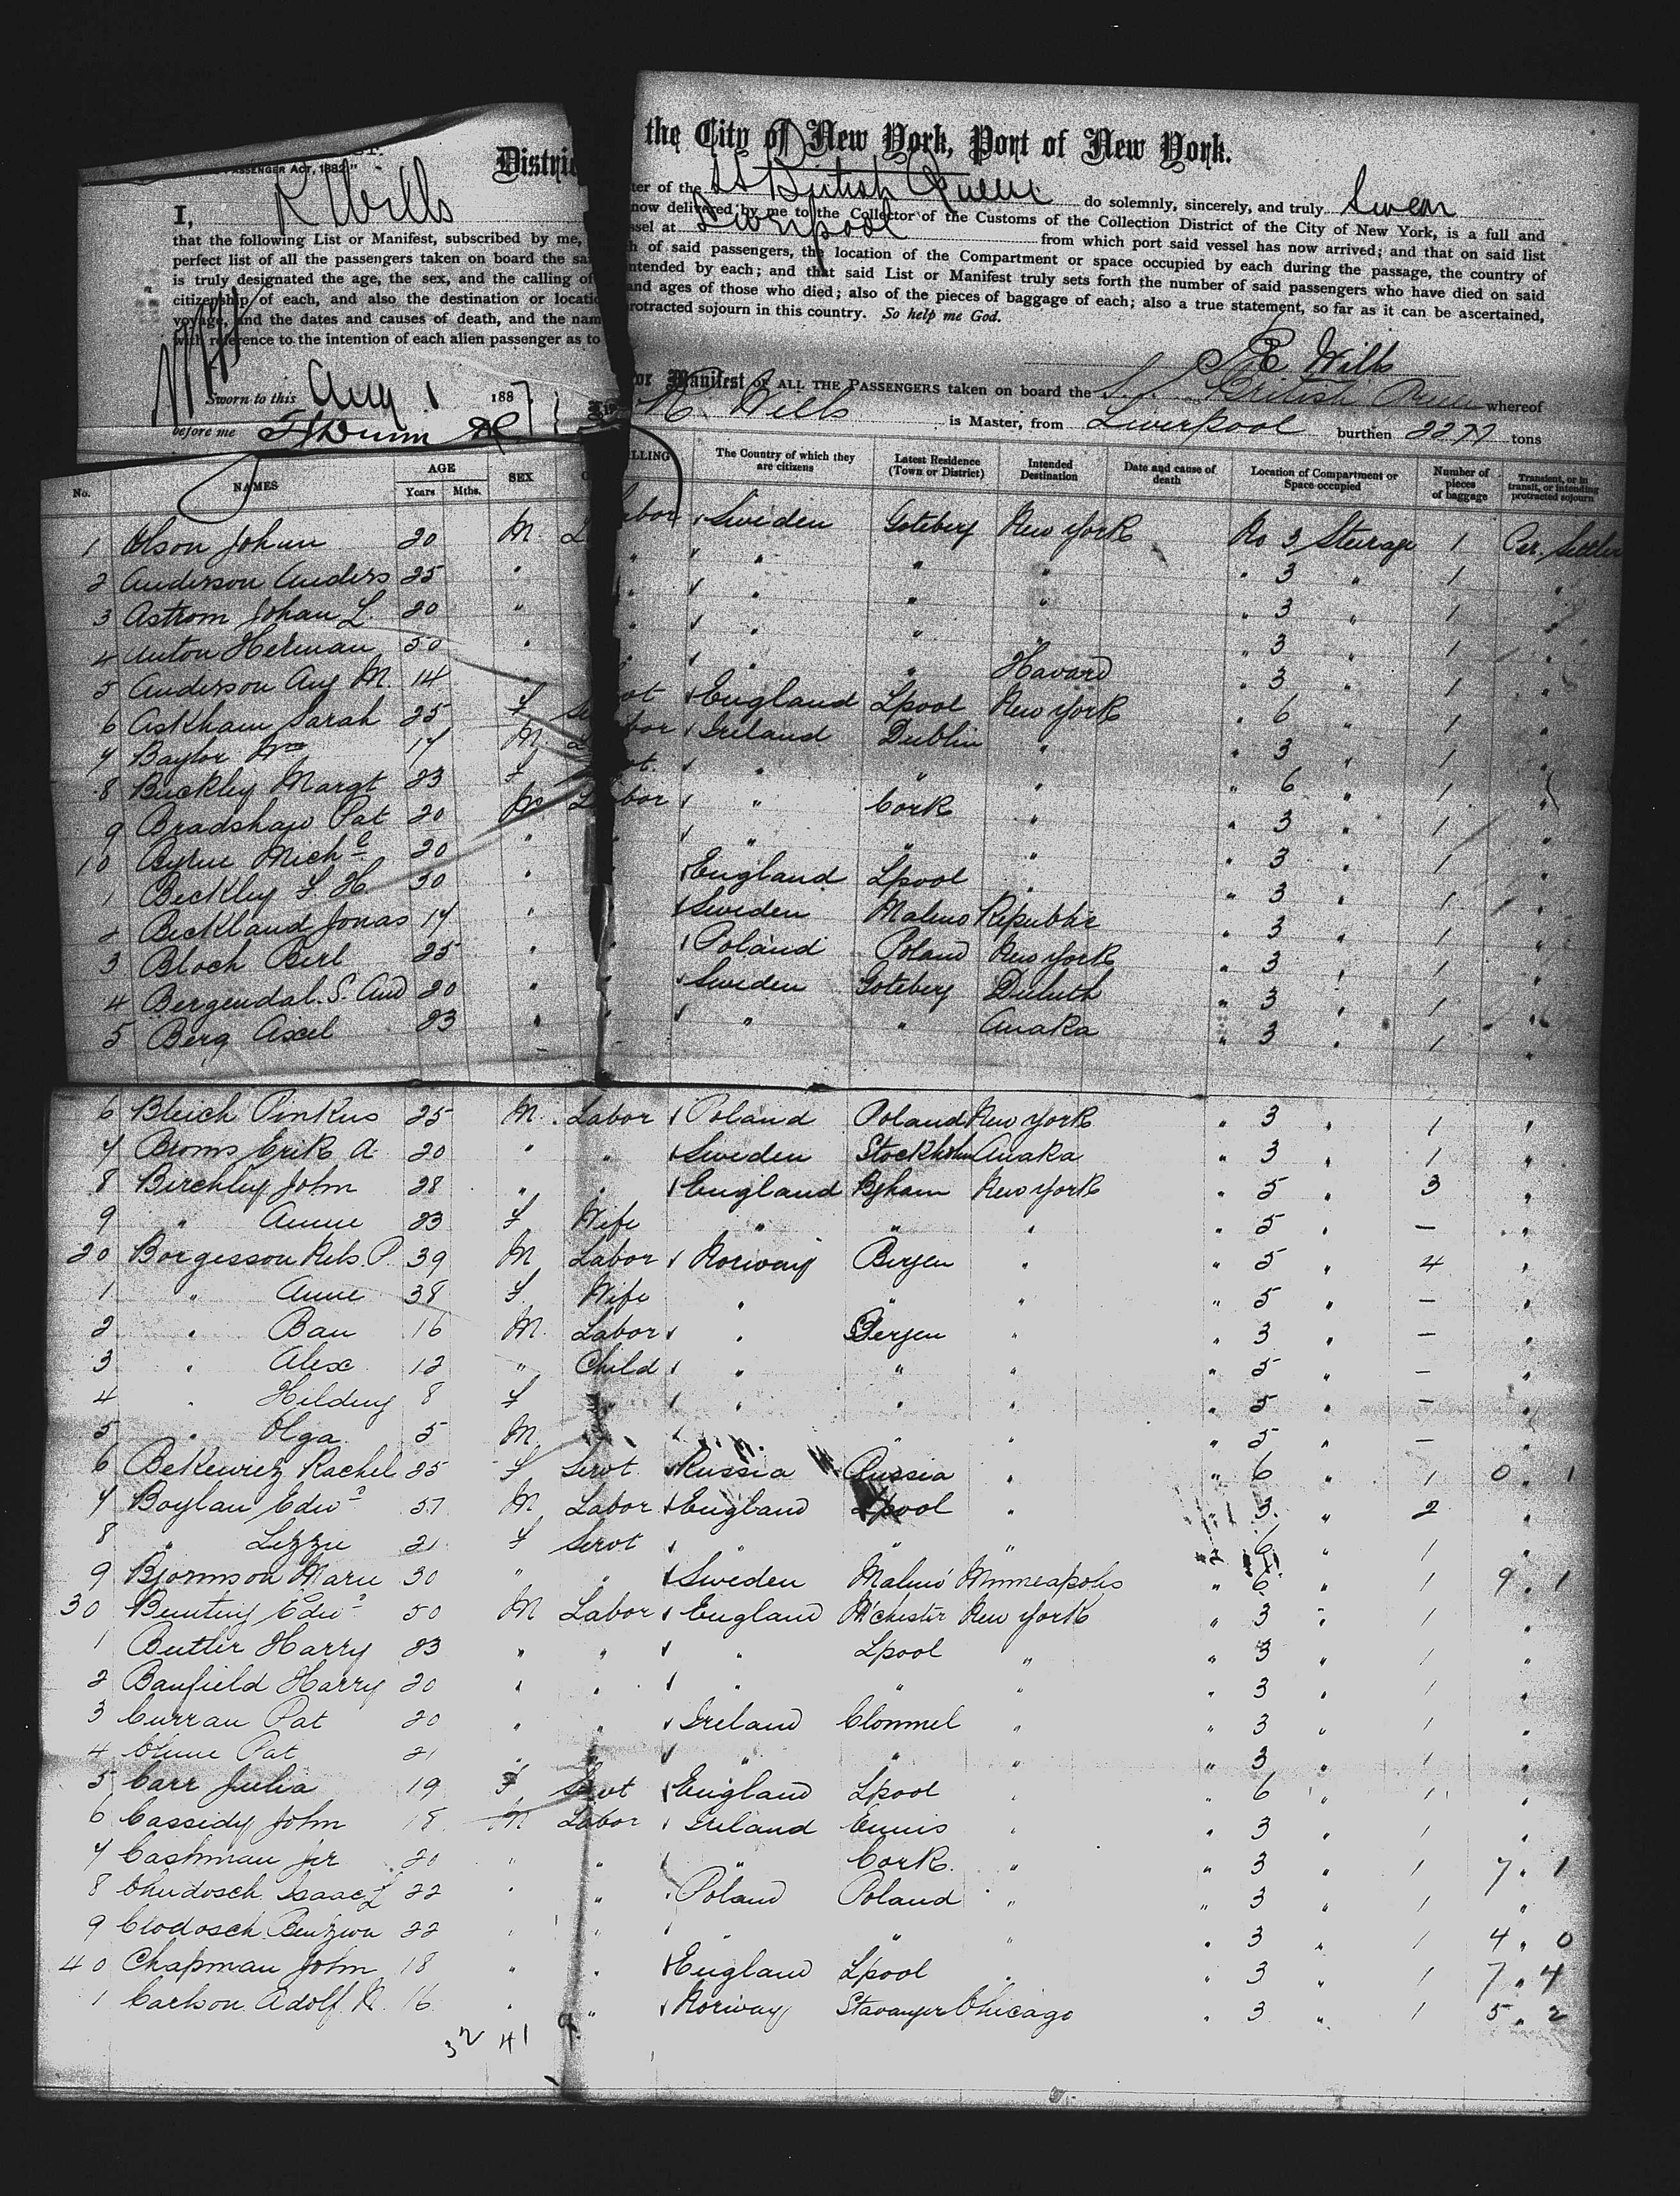 Passenger Act, 1882."
District
the City of New York, Port of New York.
I, R Wills
ter of the SS British Queen do solemnly, sincerely, and truly Swear
that the following List or Manifest, subscribed by me,
now delivered by me to the Collector of the Customs of the Collection District of the City of New York, is a full and
perfect list of all the passengers taken on board the sa
ssel at Liverpool from which port said vessel has now arrived; and that on said list
is truly designated the age, the sex, and the calling of
h of said passengers, the location of the Compartment or space occupied by each during the passage, the country of
citizenship of each, and also the destination or locatio
ntended by each; and that said List or Manifest truly sets forth the number of said passengers who have died on said
voyage, and the dates and causes of death, and the nam
and ages of those who died; also of the pieces of baggage of each; also a true statement, so far as it can be ascertained,
with reference to the intention of each alien passenger as to
rotracted sojourn in this country. So help me God.
R Wills
Sworn to this Aug 1 1887
before me
or Manifest of ALL THE PASSENGERS taken on board the S.S. British Queen whereof
R. Wills is Master, from Liverpool burthen 2277 tons
No. NAMES AGE Years Mths. SEX C LLING The Country of which they are citizens Latest Residence (Town or District) Intended Destination Date and cause of death Location of Compartment or Space occupied Number of pieces of baggage Transient, or in transit, or intending protracted sojourn
1 Olson Johan 20 M. Labor Sweden Goteberg New York No 3 Steerage 1 Per. Settler
2 Anderson Anders 25 " " " " " " 3 " 1 "
3 Astrom Johan L. 20 " " " " " " 3 " 1 "
4 Anton Herman 50 " " " " " " 3 " 1 "
5 Anderson Aug M. 14 " " " " Havard " 3 " 1 "
6 Askham Sarah 25 F Servt England Lpool New York " 6 " 1 "
7 Baylor Wm 17 M. Labor Ireland Dublin " " 3 " 1 "
8 Buckley Margt 23 F Servt. " " " " 6 " 1 "
9 Bradshaw Pat 20 M Labor " Cork " " 3 " 1 "
10 Byrne Michl 20 " " " " " " 3 " 1 "
1 Beckley F H 30 " " England Lpool " " 3 " 1 "
2 Beckland Jonas 17 " " Sweden Malmo Republic " 3 " 1 "
3 Bloch Berl 25 " " Poland Poland New York " 3 " 1 "
4 Bergendal. S. And 20 " " Sweden Goteberg Duluth " 3 " 1 "
5 Berg Axel 23 " " " " Anaka " 3 " 1 "
6 Bleich Pinkus 25 M. Labor Poland Poland New York " 3 " 1 "
7 Broms Erik A. 20 " " Sweden Stockholm Anaka " 3 " 1 "
8 Birchley John 28 " " England Bgham New York " 5 " 3 "
9 " Annie 23 F Wife " " " " 5 " — "
20 Borgesson Nels. P. 39 M Labor Norway Bergen " " 5 " 4 "
1 " Anne 38 F. Wife " " " " 5 " — "
2 " Ban 16 M. Labor " Bergen " " 3 " — "
3 " Alex 12 " Child " " " " 5 " — "
4 " Hilding 8 F " " " " " 5 " — "
5 " Olga 5 M. " " " " 5 " — "
6 Bekewiez Rachel 25 F Servt. Russia Russia " " 6 " 1 0 " 1
7 Boylan Edwd M Labor England Lpool " " 3 " 2 "
8 " Lizzie 21 F Servt " " " " 6 " 1 "
9 Bjornson Marie 30 " " Sweden Malmo Minneapolis " 6 " 1 9 " 1
30 Bunting Edwd 50 M Labor England M'chester New York " 3 " 1 "
1 Butler Harry 23 " " " Lpool " " 3 " 1 "
2 Banfield Harry 20 " " " " " " 3 " 1 "
3 Curran Pat 20 " " Ireland Clonmel " " 3 " 1 "
4 Clune Pat 21 " " " " " " 3 " 1 "
5 Carr Julia 19 F Servt England Lpool " " 6 " 1 "
6 Cassidy John 18 M Labor Ireland Ennis " " 3 " 1 "
7 Cashman Jer 20 " " " Cork. " " 3 " 1 7 " 1
8 Chudosch Isaac L 22 " " Poland Poland " " 3 " 1 "
9 Clodosch Benzion 22 " " " " " " 3 " 1 4 " 0
40 Chapman John 18 " " England Lpool " " 3 " 1 7 " 4
1 Carlson Adolf N. 16 " " Norway Stavanger Chicago " 3 " 1 5 " 2
32 41